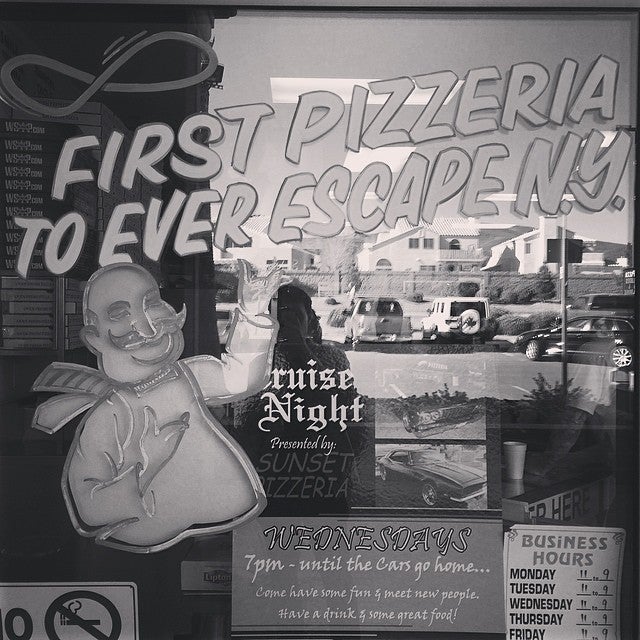 FIRST PIZZERIA
TO EVER ESCAPE N.Y.
ruise
Night
Presented by:
SUNSET
PIZZERIA
WEDNESDAYS
7pm - until the Cars go home...
Come have some fun & meet new people.
Have a drink & some great food!
Lipton
ER HERE
BUSINESS
HOURS
MONDAY 11 to 9
TUESDAY 11 to 9
WEDNESDAY 11 to 9
THURSDAY 11 to 9
FRIDAY
NO